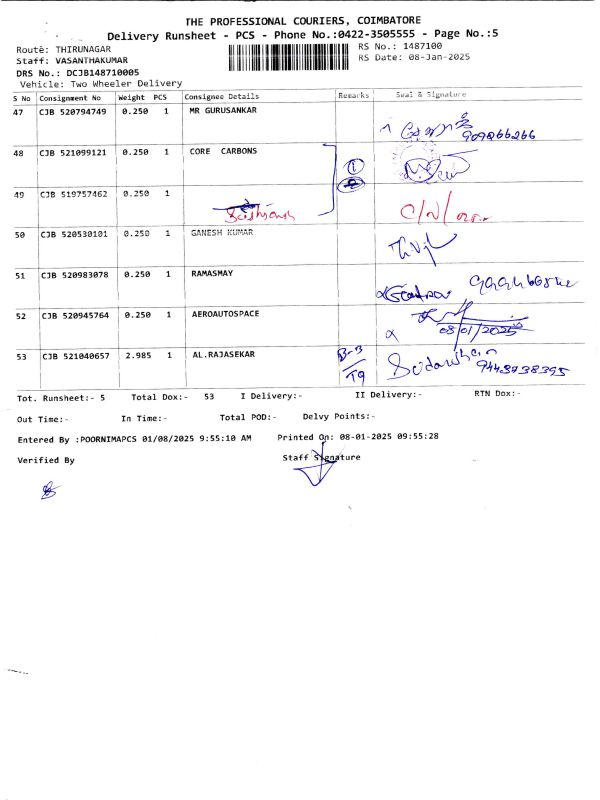 THE PROFESSIONAL COURIERS, COIMBATORE
Delivery Runsheet - PCS - Phone No.:0422-3505555 - Page No.:5
Route: THIRUNAGAR
RS No.: 1487100
Staff: VASANTHAKUMAR
RS Date: 08-Jan-2025
DRS No.: DCJB148710005
Vehicle: Two Wheeler Delivery
S No Consignment No Weight PCS Consignee Details Remarks Seal & Signature
47 CJB 520794749 0.250 1 MR GURUSANKAR
48 CJB 521099121 0.250 1 CORE CARBONS
49 CJB 519757462 0.250 1
50 CJB 520530101 0.250 1 GANESH KUMAR
51 CJB 520983078 0.250 1 RAMASMAY
52 CJB 520945764 0.250 1 AEROAUTOSPACE
08/01/2025
53 CJB 521040657 2.985 1 AL.RAJASEKAR
9443738395
Tot. Runsheet:- 5 Total Dox:- 53 I Delivery:- II Delivery:- RTN Dox:-
Out Time:- In Time:- Total POD:- Delvy Points:-
Entered By :POORNIMAPCS 01/08/2025 9:55:10 AM Printed On: 08-01-2025 09:55:28
Verified By Staff Signature